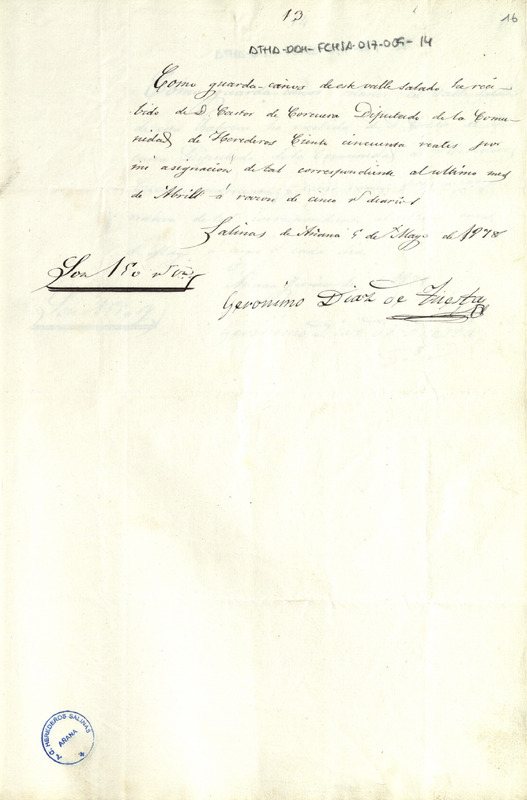 13
16
ATHA-DAH-FCHSA-017-005-14
Como guarda-caños de este valle salado he reci-
bido de D. Castor de Corcuera Diputado de la Comu-
nidad de Herederos Ciento cincuenta reales por
mi asignacion de tal correspondiente al ultimo mes
de Abrill á razon de cinco rs diarios
Salinas de Añana 5 de Mayo de 1878
Son 150 rs
Geronimo Diaz de
A. C. HEREDEROS SALINAS
AÑANA